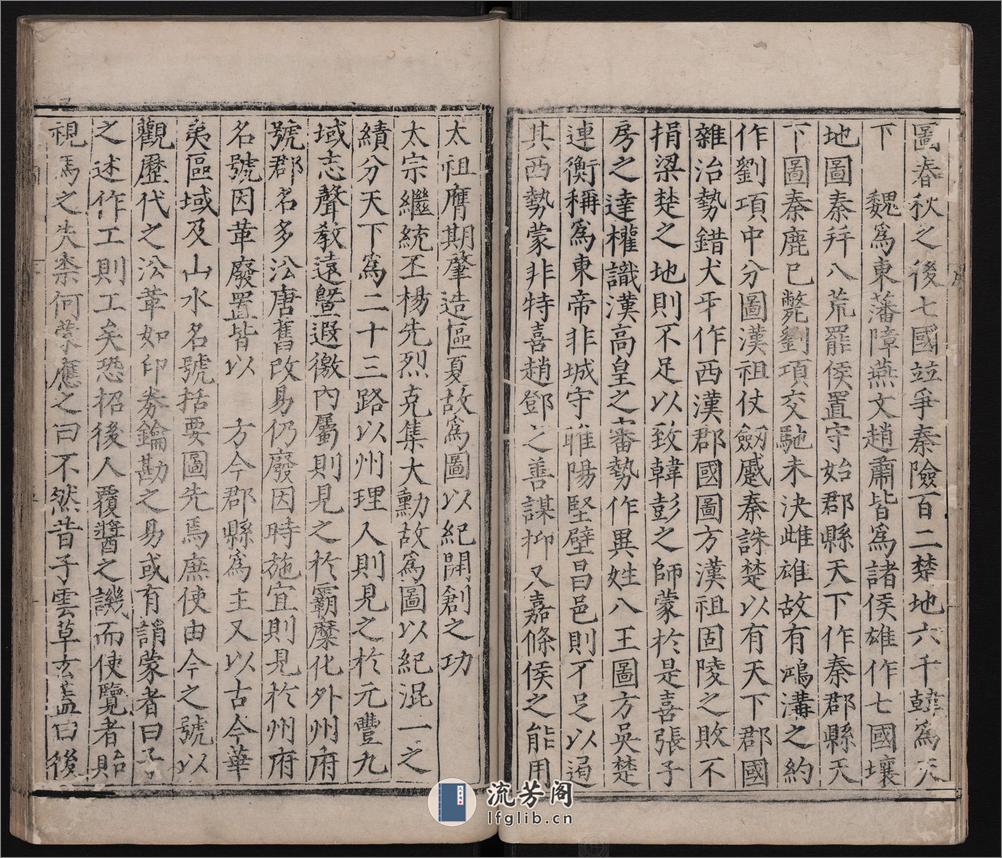 圖春秋之後七國竝爭秦險百二楚地六千韓爲天
下　魏爲東藩障燕文趙肅皆爲諸侯雄作七國壤
地圖秦幷八荒罷侯置守始郡縣天下作秦郡縣天
下圖秦鹿已斃劉項交馳未決雌雄故有鴻溝之約
作劉項中分圖漢祖仗劒蹙秦誅楚以有天下郡國
雜治勢錯犬牙作西漢郡國圖方漢祖固陵之敗不
捐梁楚之地則不足以致韓彭之師蒙於是喜張子
房之達權識漢高皇之審勢作異姓八王圖方吳楚
連衡稱爲東帝非城守睢陽堅壁昌邑則不足以遏
其西勢蒙非特喜趙鄧之善謀抑又嘉條侯之能用
太祖膺期肇造區夏故爲圖以紀開創之功
太宗繼統丕楊先烈克集大勳故爲圖以紀混一之
績分天下爲二十三路以州理人則見之於元豐九
域志聲敎遠曁遐徼內屬則見之於羈縻化外州府
號郡名多沿唐舊改易仍廢因時施宜則見於州府
名號因革廢置皆以　方今郡縣爲主又以古今華
夷區域及山水名號括要圖先焉庶使由今之號以
觀歷代之沿革如印券鑰勘之易或有誚蒙者曰子
之述作工則工矣恐招後人覆醬之譏而使覽者貽
視焉之失柰何蒙應之曰不然昔子雲草玄蓋曰後
流芳阁
lfglib.cn